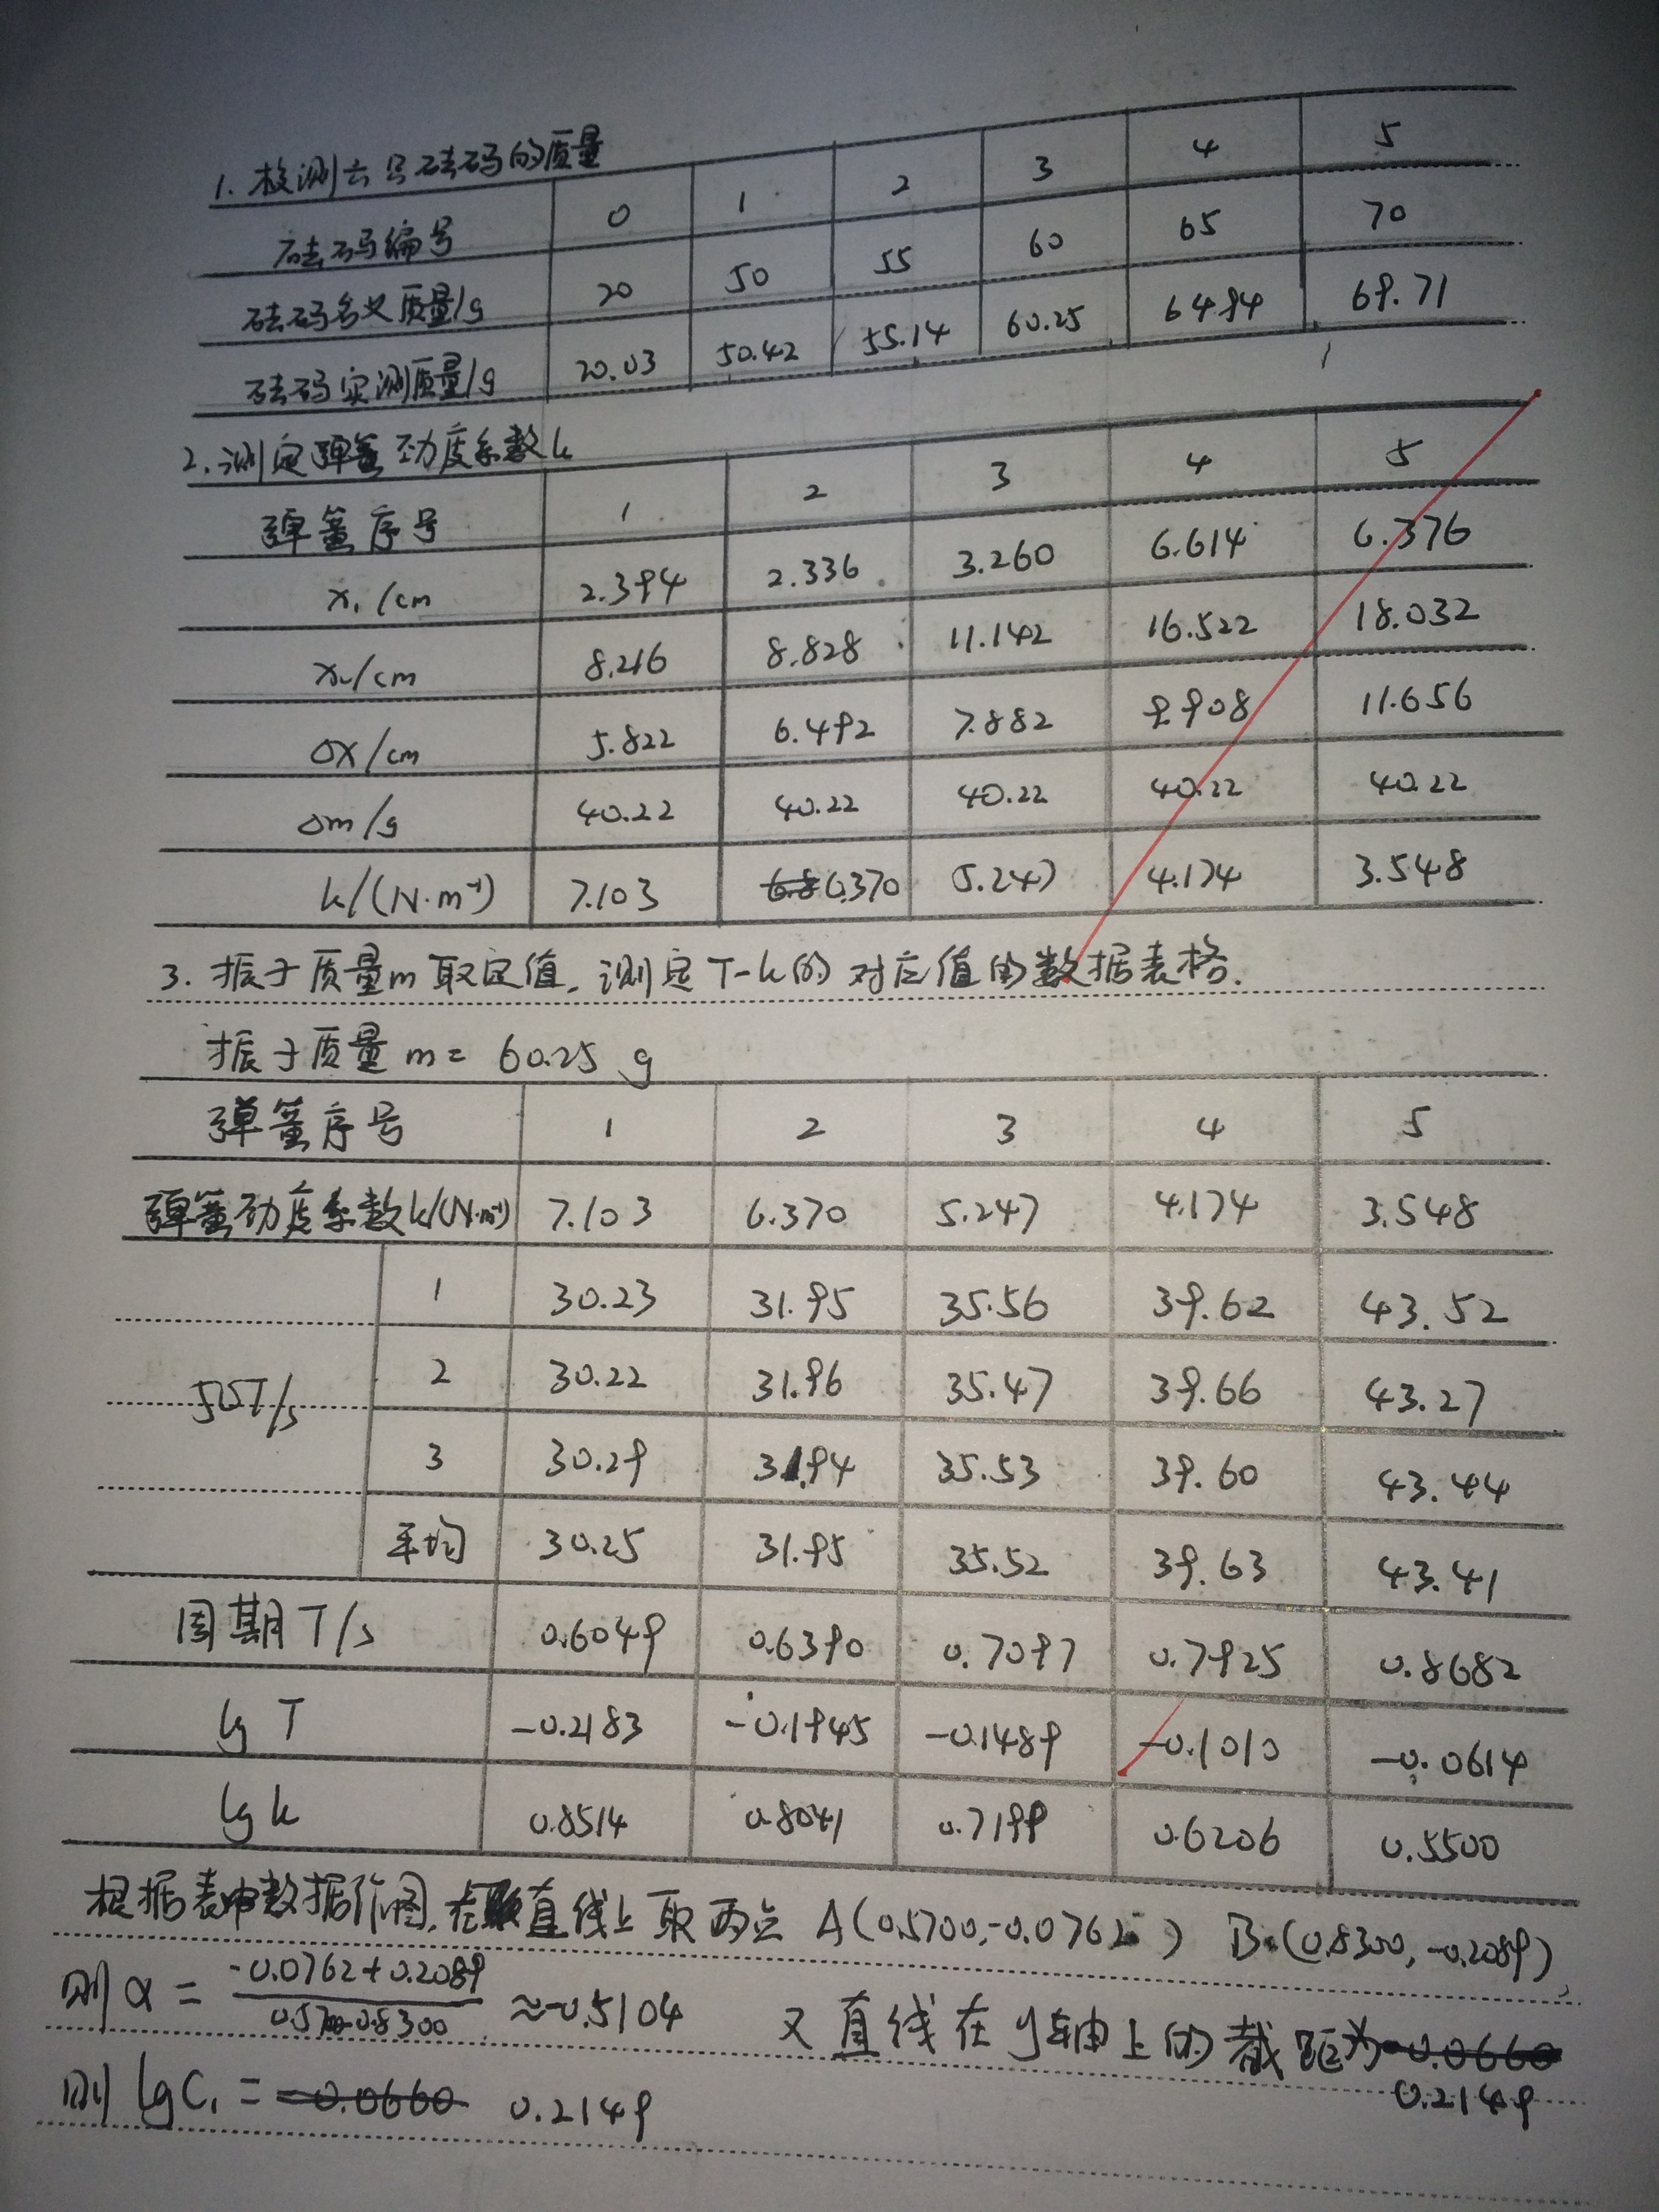 1. 检测六只砝码的质量
砝码编号 0 1 2 3 4 5
砝码名义质量/g 20 50 55 60 65 70
砝码实测质量/g 20.03 50.42 55.14 60.25 64.94 69.71
2. 测定弹簧劲度系数k
弹簧序号 1 2 3 4 5
x₁/cm 2.394 2.336 3.260 6.614 6.376
x₂/cm 8.216 8.828 11.142 16.522 18.032
Δx/cm 5.822 6.492 7.882 9.908 11.656
Δm/g 40.22 40.22 40.22 40.22 40.22
k/(N·m⁻¹) 7.103 6.370 5.247 4.174 3.548
3. 振子质量m取定值, 测定T-k的对应值的数据表格.
振子质量 m = 60.25 g
弹簧序号 1 2 3 4 5
弹簧劲度系数k/(N·m⁻¹) 7.103 6.370 5.247 4.174 3.548
1 30.23 31.95 35.56 39.62 43.52
50T/s 2 30.22 31.96 35.47 39.66 43.27
3 30.29 31.94 35.53 39.60 43.44
平均 30.25 31.95 35.52 39.63 43.41
周期T/s 0.6049 0.6390 0.7097 0.7925 0.8682
lg T -0.2183 -0.1945 -0.1489 -0.1010 -0.0614
lg k 0.8514 0.8041 0.7199 0.6206 0.5500
根据表中数据作图, 在直线上取两点 A(0.5700, -0.0762) B(0.8300, -0.2089),
则 α = -0.0762+0.2089 / 0.5700-0.8300 ≈ -0.5104 又直线在y轴上的截距为 -0.0660
0.2149
则 lgC₁ = -0.0660 0.2149